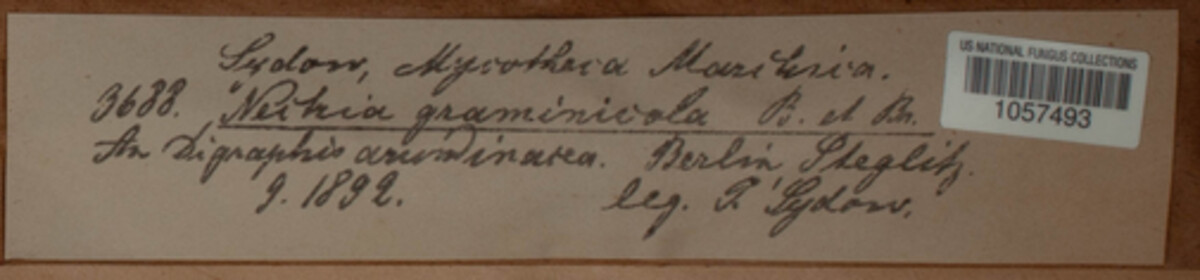 Sydow, Mycotheca Marchica.
3688. Nectria graminicola B. et Br.
An Digraphis arundinacea. Berlin Steglitz.
9. 1892. leg. P. Sydow.
US NATIONAL FUNGUS COLLECTIONS
1057493